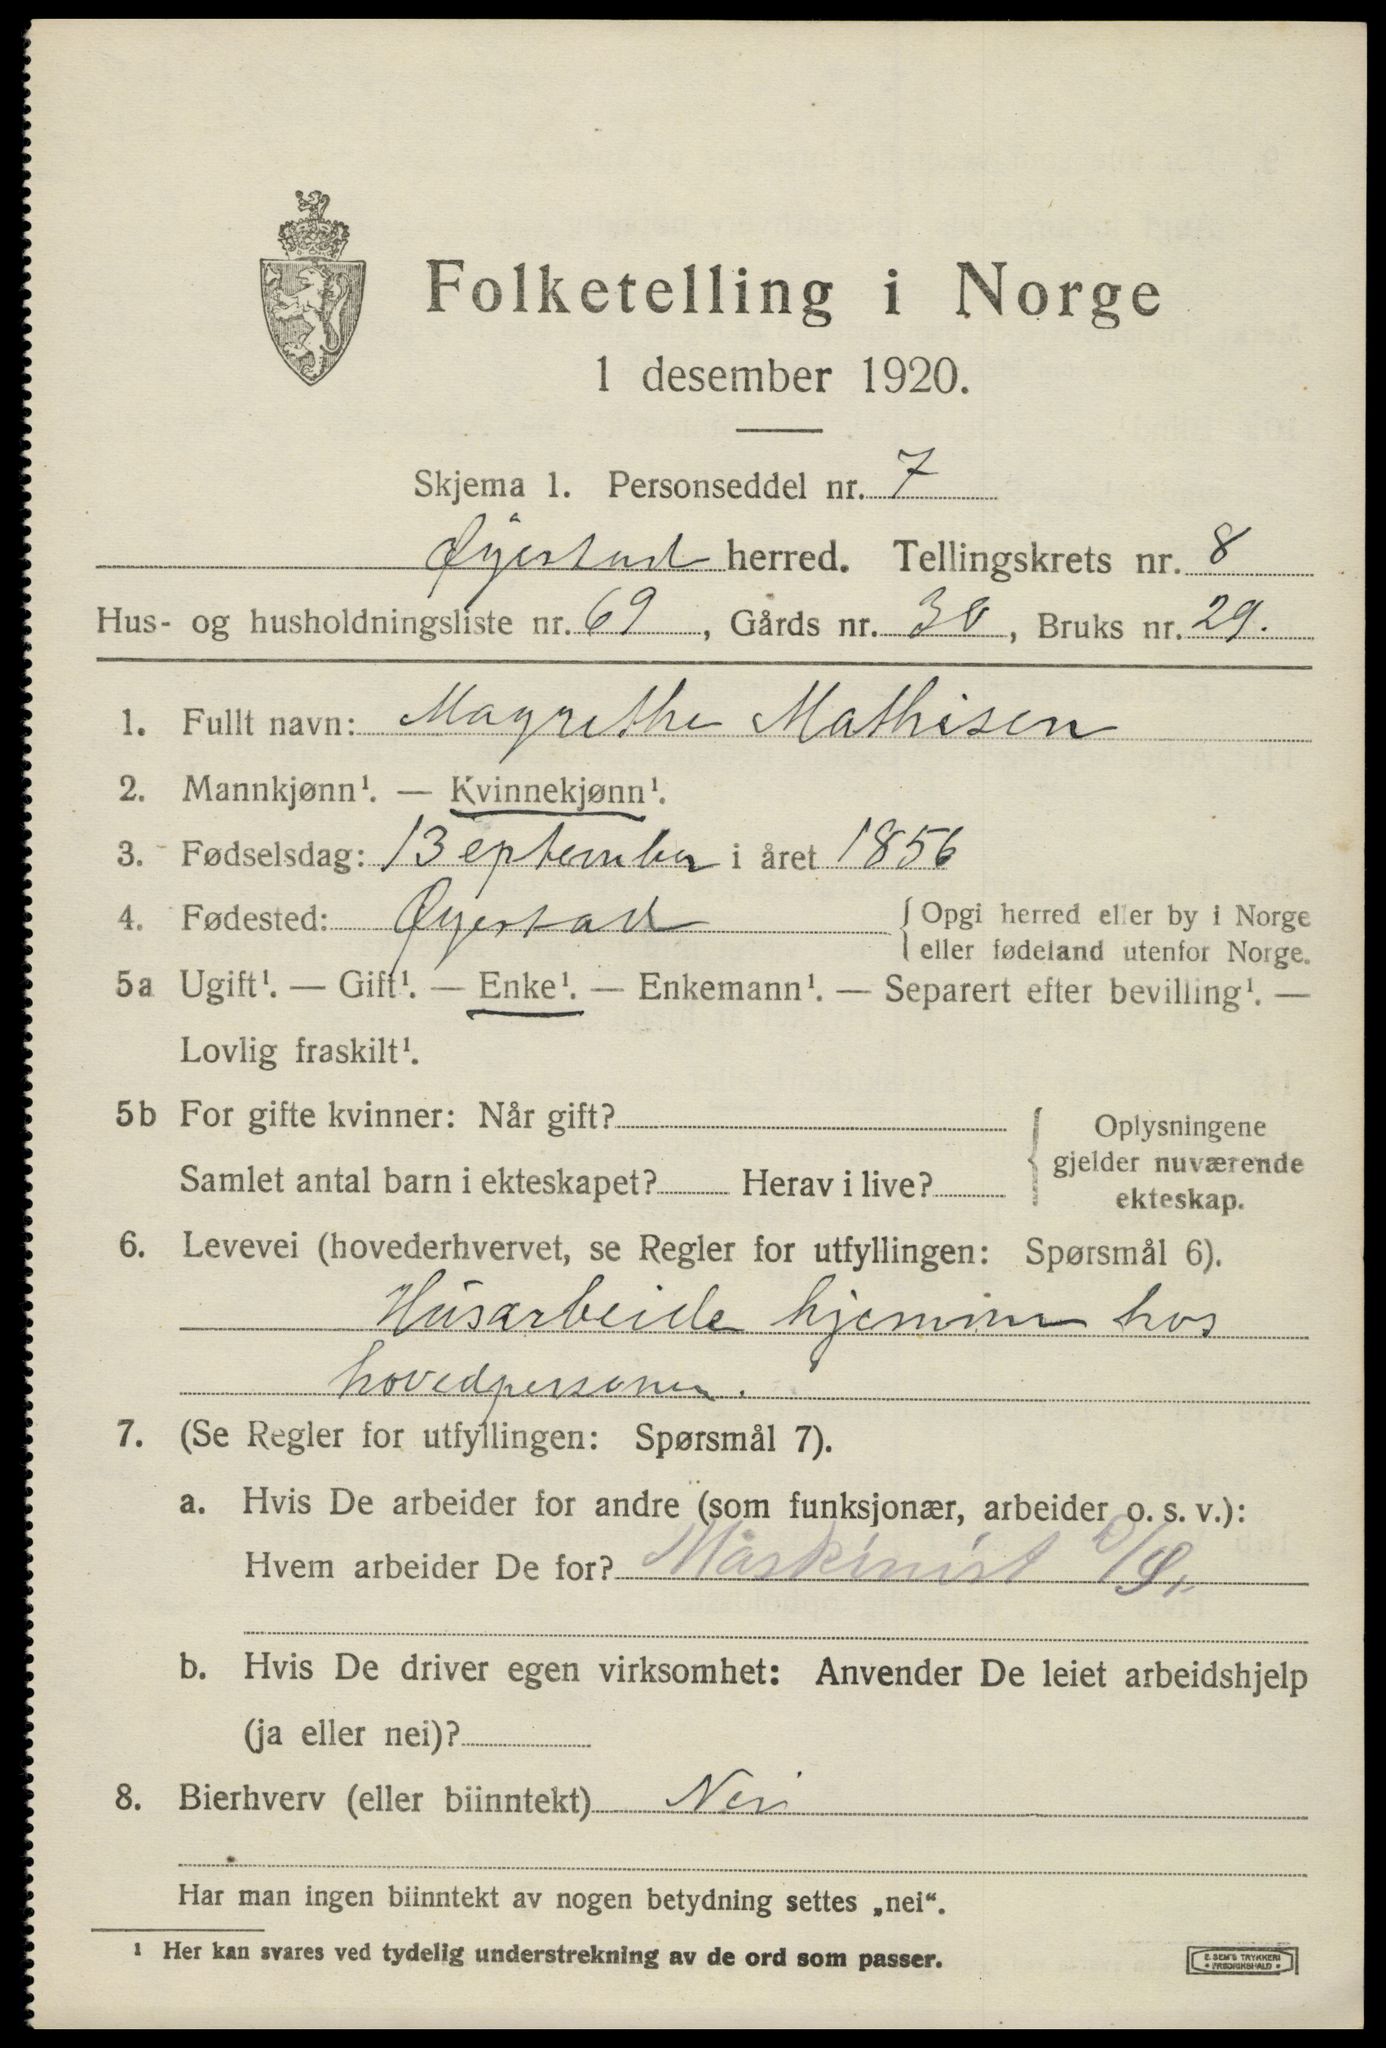 Folketelling i Norge
1 desember 1920.
Skjema 1. Personseddel nr. 7
Øyestad herred. Tellingskrets nr. 8
Hus- og husholdningsliste nr. 69, Gårds nr. 30, Bruks nr. 29.
1. Fullt navn: Magrethe Mathisen
2. Mannkjønn¹. — Kvinnekjønn¹.
3. Fødselsdag: 13 eptember i året 1856
4. Fødested: Øyestad {Opgi herred eller by i Norge
eller fødeland utenfor Norge.
5a Ugift¹. — Gift¹. — Enke¹. — Enkemann¹. — Separert efter bevilling¹. —
Lovlig fraskilt¹.
5b For gifte kvinner: Når gift?
Samlet antal barn i ekteskapet? Herav i live?
{Oplysningene
gjelder nuværende
ekteskap.
6. Levevei (hovederhvervet, se Regler for utfyllingen: Spørsmål 6).
Husarbeide hjemme hos
hovedpersonen.
7. (Se Regler for utfyllingen: Spørsmål 7).
a. Hvis De arbeider for andre (som funksjonær, arbeider o. s. v.):
Hvem arbeider De for? Maskinist
b. Hvis De driver egen virksomhet: Anvender De leiet arbeidshjelp
(ja eller nei)?
8. Bierhverv (eller biinntekt) Nei
Har man ingen biinntekt av nogen betydning settes „nei“.
¹ Her kan svares ved tydelig understrekning av de ord som passer.
E. SEM'S TRYKKERI
FREDRIKSHALD